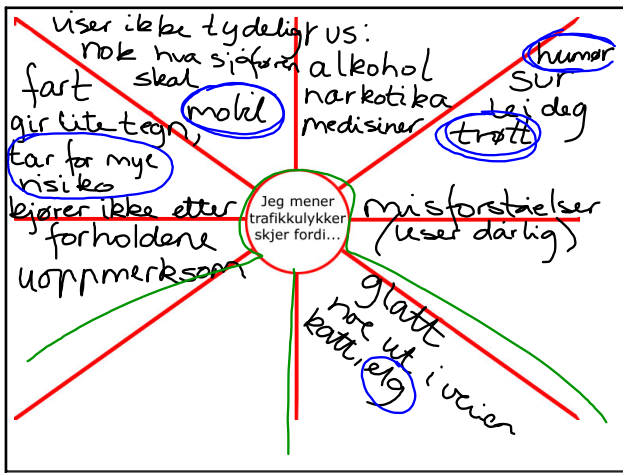 viser ikke tydelig
nok hva sjåføren
skal
mobil
fart
gir lite tegn,
tar for mye
risiko
kjører ikke etter
forholdene
uoppmerksom
rus:
alkohol
narkotika
medisiner
humør
sur
lei deg
trøtt
Jeg mener
trafikkulykker
skjer fordi...
misforståelser
(viser dårlig)
glatt
noe ut i veien
katt, elg